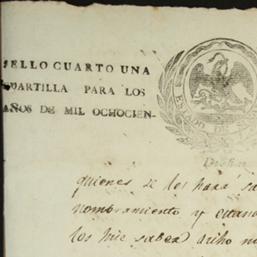 SELLO CUARTO UNA
QUARTILLA PARA LOS
AÑOS DE MIL OCHOCIEN-
ESTADO DE
quienes se les hará
nombramiento y
los hic saber dicho